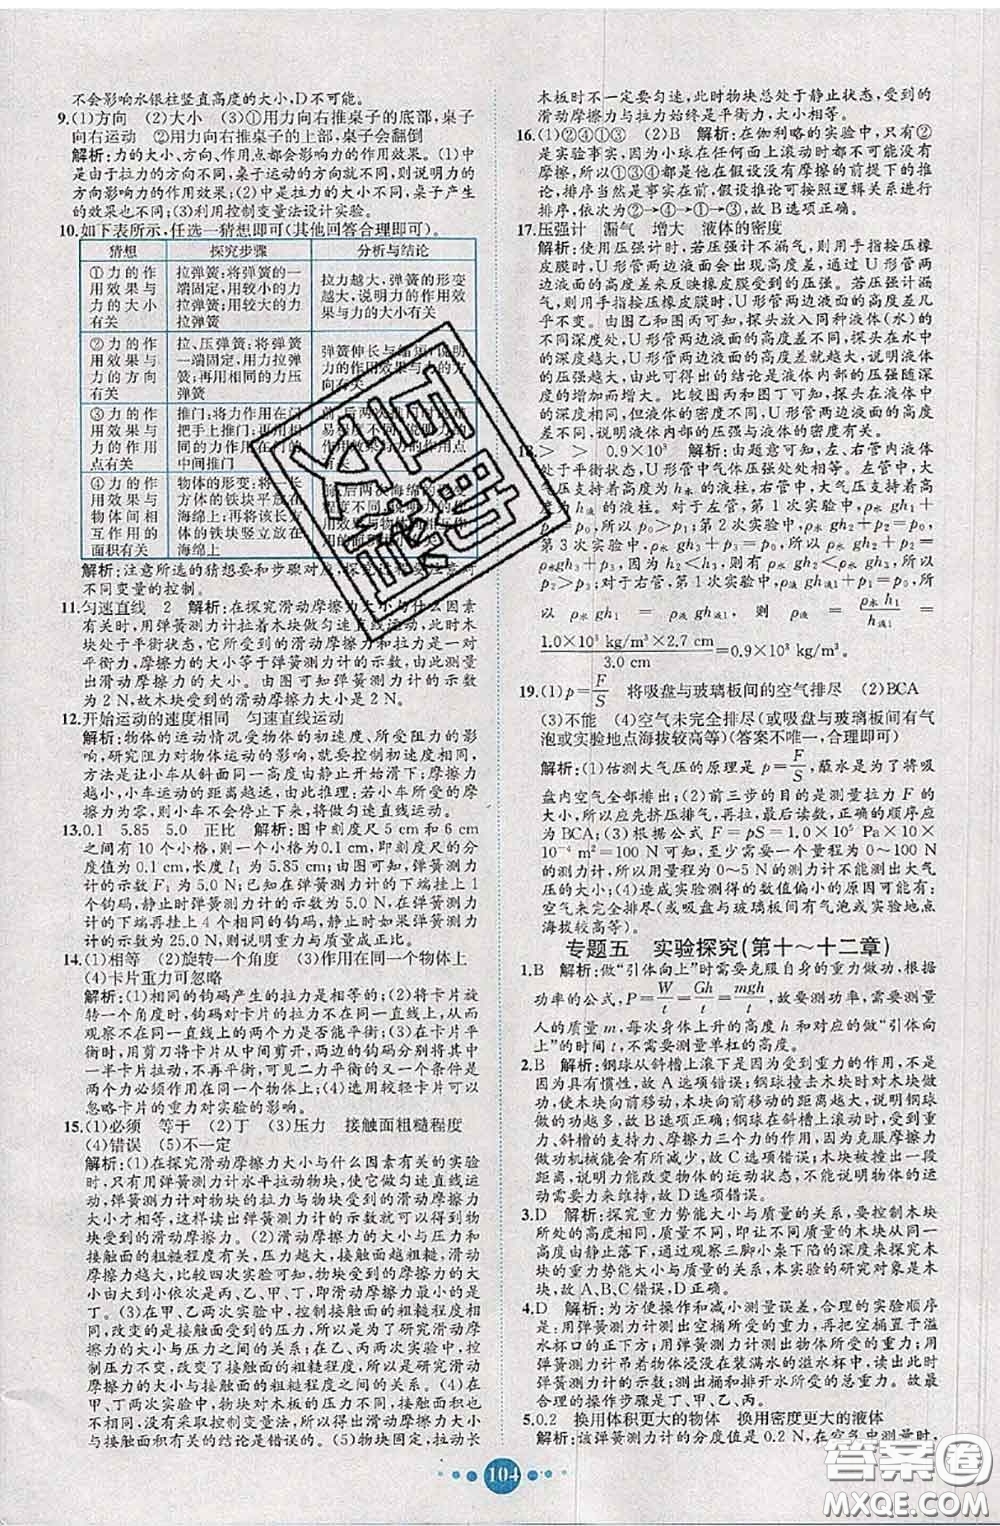 不会影响水银柱竖直高度的大小,D不可能。
9.(1)方向 (2)大小 (3)①用力向右推桌子的底部,桌子
向右运动 ②用力向右推桌子的上部,桌子会翻倒
解析:力的大小、方向、作用点都会影响力的作用效果。(1)中
是由于拉力的方向不同,桌子运动的方向就不同,则说明力的
方向影响力的作用效果;(2)中是拉力的大小不同,桌子产生
的效果也不同;(3)利用控制变量法设计实验。
10.如下表所示,任选一猜想即可(其他回答合理即可)。
猜想 探究步骤 分析与结论
①力的作
用效果与
力的大小
有关
拉弹簧;将弹簧的一
端固定,用较小的力
拉弹簧;用较大的力
拉弹簧
拉力越大,弹簧的形变
越大,说明力的作用效
果与力的大小有关
②力的作
用效果与
力的方向
有关
拉、压弹簧;将弹簧
一端固定,用力拉弹
簧;再用相同的力压
弹簧
弹簧伸长与缩短,说明
力的作用效果与力的方
向有关
③力的作
用效果与
力的作用
点有关
推门;将力作用在门
把手上推门;再用相
同的力作用在门的
中间推门
前、后两次推门的难
易程度不同,说明力的
作用效果与力的作用点
有关
④力的作
用效果与
物体间相
互作用的
面积有关
物体的形变;将一长
方体的铁块平放在
海绵上;再将该长方
体的铁块竖立放在
海绵上
前、后两次海绵的形变
程度不同,说明力的作
用效果与物体间相互作
用的面积有关
解析:注意所选的猜想要和步骤对应,探究过程要注意对
不同变量的控制。
11.匀速直线 2 解析:在探究滑动摩擦力大小与什么因素
有关时,用弹簧测力计拉着木块做匀速直线运动时,木
块处于平衡状态,它所受到的滑动摩擦力和拉力是一对
平衡力,摩擦力的大小等于弹簧测力计的示数,由此测量
出滑动摩擦力的大小。由图可知弹簧测力计的示数为
2 N,故木块受到的滑动摩擦力大小是 2 N。
12.开始运动的速度相同 匀速直线运动
解析:物体的运动情况受物体的初速度、所受阻力的影
响,研究阻力对物体运动的影响,就要控制初速度相同,
方法是让小车从斜面同一高度由静止开始滑下;摩擦力
越小,小车运动的距离越远,由此推理:若小车所受的摩
擦力为零,则小车不会停下来,将做匀速直线运动。
13.0.1 5.85 5.0 正比 解析:图中刻度尺 5 cm 和 6 cm
之间有 10 个小格,则一个小格代表 0.1 cm,即刻度尺的
分度值为 0.1 cm,长度 l₁ 为 5.85 cm;由图可知,弹簧测力
计的示数 F₁ 为 5.0 N;已知在弹簧测力计的下端挂上 1
个钩码,静止时弹簧测力计的示数为 5.0 N,在弹簧测力
计的下端再挂上 4 个相同的钩码,静止时如果弹簧测力
计的示数为25.0 N,则说明弹簧的伸长与受到的拉力成正比。
14.(1)相同 (2)旋转一个角度 (3)作用在同一个物体上
(4)卡片重力可忽略
解析:(1)相同的钩码产生的拉力相同;(2)将卡片旋
转一个角度时,钩码对卡片的拉力不在同一直线上,从而
观察不在同一直线上的两个力是否能平衡;(3)卡片平
衡时,用剪刀剪将卡片从中间剪开,两边的钩码将使其中
一半卡片拉动,不再平衡,可见二力平衡的又一个条件是
两个力必须作用在同一个物体上;(4)选用较轻卡片可以
忽略卡片的重力对实验的影响。
15.(1)必须 等于 (2)丁 (3)压力 接触面粗糙程度
(4)错误 (5)不一定
解析:(1)在探究滑动摩擦力大小与什么因素有关的实验
时,只有用弹簧测力计水平拉动物块,使它做匀速直线运
动,弹簧测力计对物块的拉力与物块受到的滑动摩擦力
大小才相等,这样读出弹簧测力计的示数就可以得到物块
受到的滑动摩擦力的大小。(2)滑动摩擦力大小与压力和
接触面的粗糙程度有关,压力越大、接触面越粗糙,滑动摩
擦力越大,比较四次实验可知:物块受到的摩擦力的大小
由大到小依次是丙、乙、甲、丁,即滑动摩擦力最小的是
丁。(3)在甲、乙两次实验中,控制接触面的粗糙程度相
同,不同的是接触面受到的压力,故可研究滑动摩擦力的
大小与压力大小之间的关系;在乙、丙两次实验中,控制
压力不变,改变了接触面的粗糙程度,故可研究滑动摩擦
力的大小与接触面粗糙程度之间的关系。(4)在甲、
丁两次实验中,物块对木板的压力不同,故小明
没有采取控制变量法,所以得出滑动摩擦力的大小与接
触面积大小有关的结论是错误的。(5)物块固定,拉动长
木板时不一定要匀速,此时物块总处于静止状态,受到的
滑动摩擦力与拉力始终是平衡力,大小相等。
16.(1)②④①③ (2)B 解析:在伽利略的实验中,只有②
是实验事实,因为小球在任何面上滚动时都不可能没有
摩擦,所以①③④都是他在假设没有摩擦的前提下的推
论,排序当然是事实在前,假设推论可按照逻辑关系进行
排序,依次为②→④→①→③,故B选项正确。
17.压强计 漏气 增大 液体的密度
解析:使用压强计时,若压强计不漏气,则用手指按压橡
皮膜时,U形管两边液面会出现高度差,通过U形管两边
液面的高度差来反映橡皮膜受到的压强。若压强计漏
气,则用手指不论轻压还是重压橡皮膜,U形管两边液面
几乎没有变化,即U形管两边液面的高度差几
乎为零。由图乙和丙可知,探头放入同种液体(水)的
不同深度处,U形管两边液面的高度差不同,探头在水中
的深度越大,U形管两边液面的高度差越大,说明液体的
压强越大,由此得出的结论是液体内部的压强随深度的
增加而增大。比较图丙和图丁可知,探头在液体中的
深度相同,但液体的密度不同,U形管两边液面的高度差
不同,说明液体内部的压强与液体的密度有关。
18.> > 0.9×10³ 解析:由题意可知,左、右管内液体
处于平衡状态,U形管中气体压强处处相等。左管中,大
气压支持着高度为h水的液柱,右管中,大气压支持着高度
为h液的液柱。对于左管,第1次实验中,ρ水gh₁+p₁=
p₀,所以p₀>p₁;第2次实验中,ρ水gh₂+p₂=p₀,
第3次实验中,ρ水gh₃+p₃=p₀,由于h₂<h₃,所以
p₂>p₃;对于右管,第1次实验中,ρ液gh液+p₁=p₀,所
以 ρ水gh₁=ρ液gh液, 则 ρ液=ρ水h₁/h液=
1.0×10³ kg/m³×2.7 cm/3.0 cm=0.9×10³ kg/m³。
19.(1)p=F/S 将吸盘与玻璃板间的空气排尽 (2)BCA
(3)不能 (4)空气未完全排尽(或吸盘与玻璃板间有气
泡或实验地点海拔较高等)(答案不唯一,合理即可)
解析:(1)估测大气压的原理是p=F/S,蘸水是为了将吸
盘内空气全部排出;(2)前三步的目的是测量拉力F的
大小,所以应先挤压排气,再测量,最后读数,正确的顺序应
为BCA;(3)根据公式,F=pS=1.0×10⁵ Pa×10×
10⁻⁴ m²=100 N可知,至少需要一个量程为0~100 N
的测力计,所以用量程为0~5 N的测力计不能测出大气
压的大小;(4)造成实验测得的数值偏小的原因可能是:
空气未完全排尽(或吸盘与玻璃板间有气泡或实验地点
海拔较高等)。
专题五 实验探究(第十~十二章)
1.B 解析:做“引体向上”时需要克服自身的重力做功,根据
功率的公式,P=W/t=Gh/t=mgh/t,故要测功率,需要测量
人的质量m,每次身体上升的高度h和对应的做“引体向
上”的时间t,不需要测量单杠的高度。
2.B 解析:钢球从斜槽上滚下是因为受到重力的作用,不是
因为具有惯性,故A选项错误;钢球撞击木块时对木块做
功,使木块向前移动,木块向前移动的距离越大,说明钢球
做功越多,故B选项正确;钢球在斜槽上滚动时,受到重
力、斜槽的支持力、摩擦力三个力的作用,因为克服摩擦力
做功机械能会有所减少,故C选项错误;木块被撞出一段
距离,说明力能改变物体的运动状态,不能说明物体的运
动需要力来维持,故D选项错误。
3.D 解析:探究重力势能大小与质量的关系,要控制木块
所处的高度相同,通过改变质量大小不同的木块从同一高
度由静止落下,通过观察三脚小桌下陷的深度来探究木
块的重力势能大小与质量的关系,本实验的研究对象是
木块,故A、B、C错误,D正确。
4.D 解析:为方便操作和减小测量误差,合理的实验顺序
是:丁.用弹簧测力计测出空桶所受的重力,再把空桶置于
溢水杯口的正下方;甲.用弹簧测力计测出物体所受的重力;乙.用
弹簧测力计吊着物体浸没在装满水的溢水杯中,读出测力
计的示数;丙.测出桶和排开水所受的总重力。故最
合理的操作步骤是丁、甲、乙、丙。
5.0.2 换用体积更大的物体 换用密度更大的液体
解析:该弹簧测力计的分度值是0.2 N,在空气中测量时,
104
答案圈
MXQE.COM